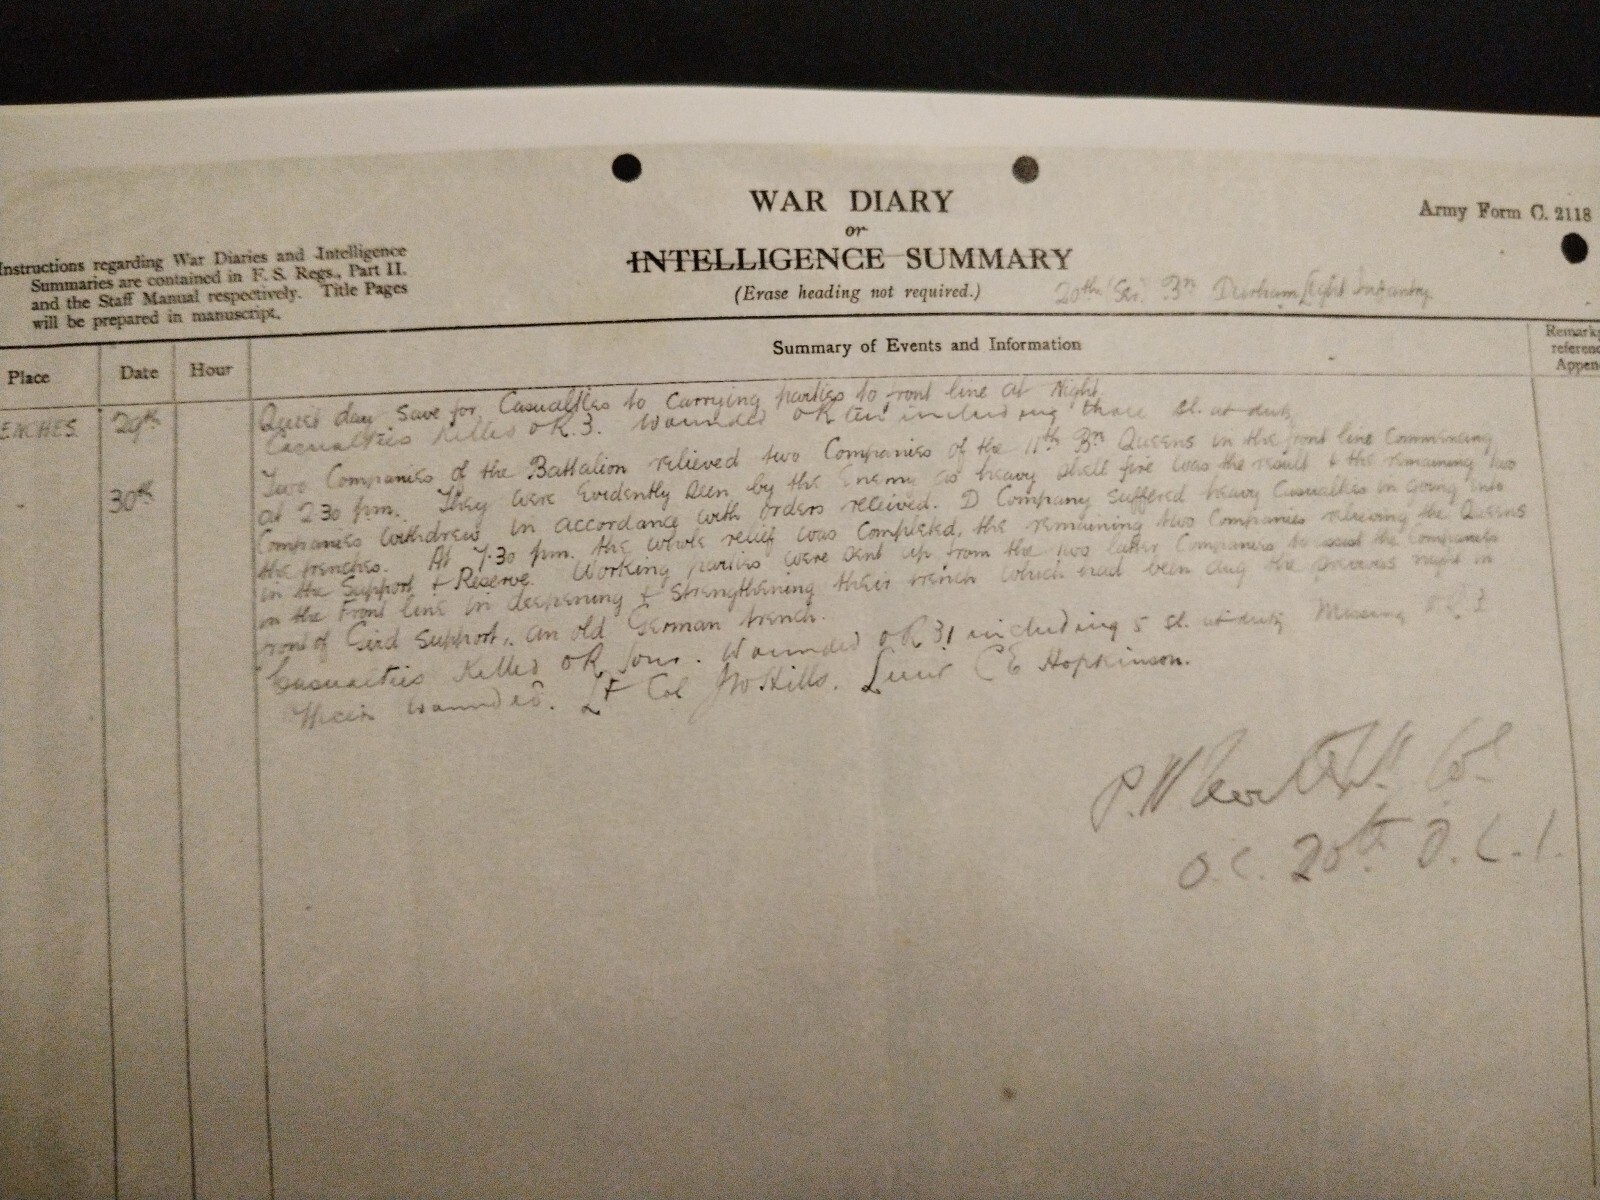 WAR DIARY
or
INTELLIGENCE SUMMARY
(Erase heading not required.)
Army Form C. 2118
Instructions regarding War Diaries and Intelligence
Summaries are contained in F. S. Regs., Part II.
and the Staff Manual respectively. Title Pages
will be prepared in manuscript.
20th Ser. Bn Durham Light Infantry
Place Date Hour
Summary of Events and Information
Remarks
referenc
Appen
ENCHES 29th
Quiet day save for Casualties to Carrying parties to front line at Night
Casualties Killed OR 3. Wounded OR ten including three sl. at duty
30th
Two Companies of the Battalion relieved two Companies of the 11th Bn Queens in the front line commencing
at 2.30 pm. They were Evidently seen by the Enemy as heavy shell fire was the result & the remaining two
Companies withdrew in accordance with orders received. D Company suffered heavy Casualties in going into
the trenches. At 7.30 pm. the whole relief was completed, the remaining two Companies relieving the Queens
in the Support & Reserve. Working parties were sent up from the two latter Companies to assist the Companies
in the Front line in deepening & strengthening their trench which had been dug the previous night in
front of Gird Support, an old German trench.
Casualties Killed OR four. Wounded OR 31 including 5 sl. at duty Missing OR
Officers wounded. Lt Col J W Hills. Lieut C E Hopkinson.
Col
O.C. 20th D.L.I.